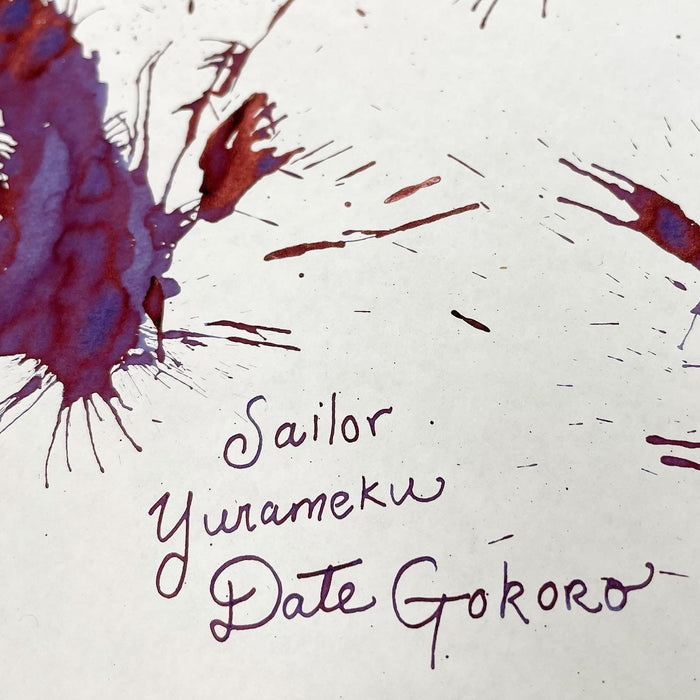 Sailor
Yurameku
Date Gokoro